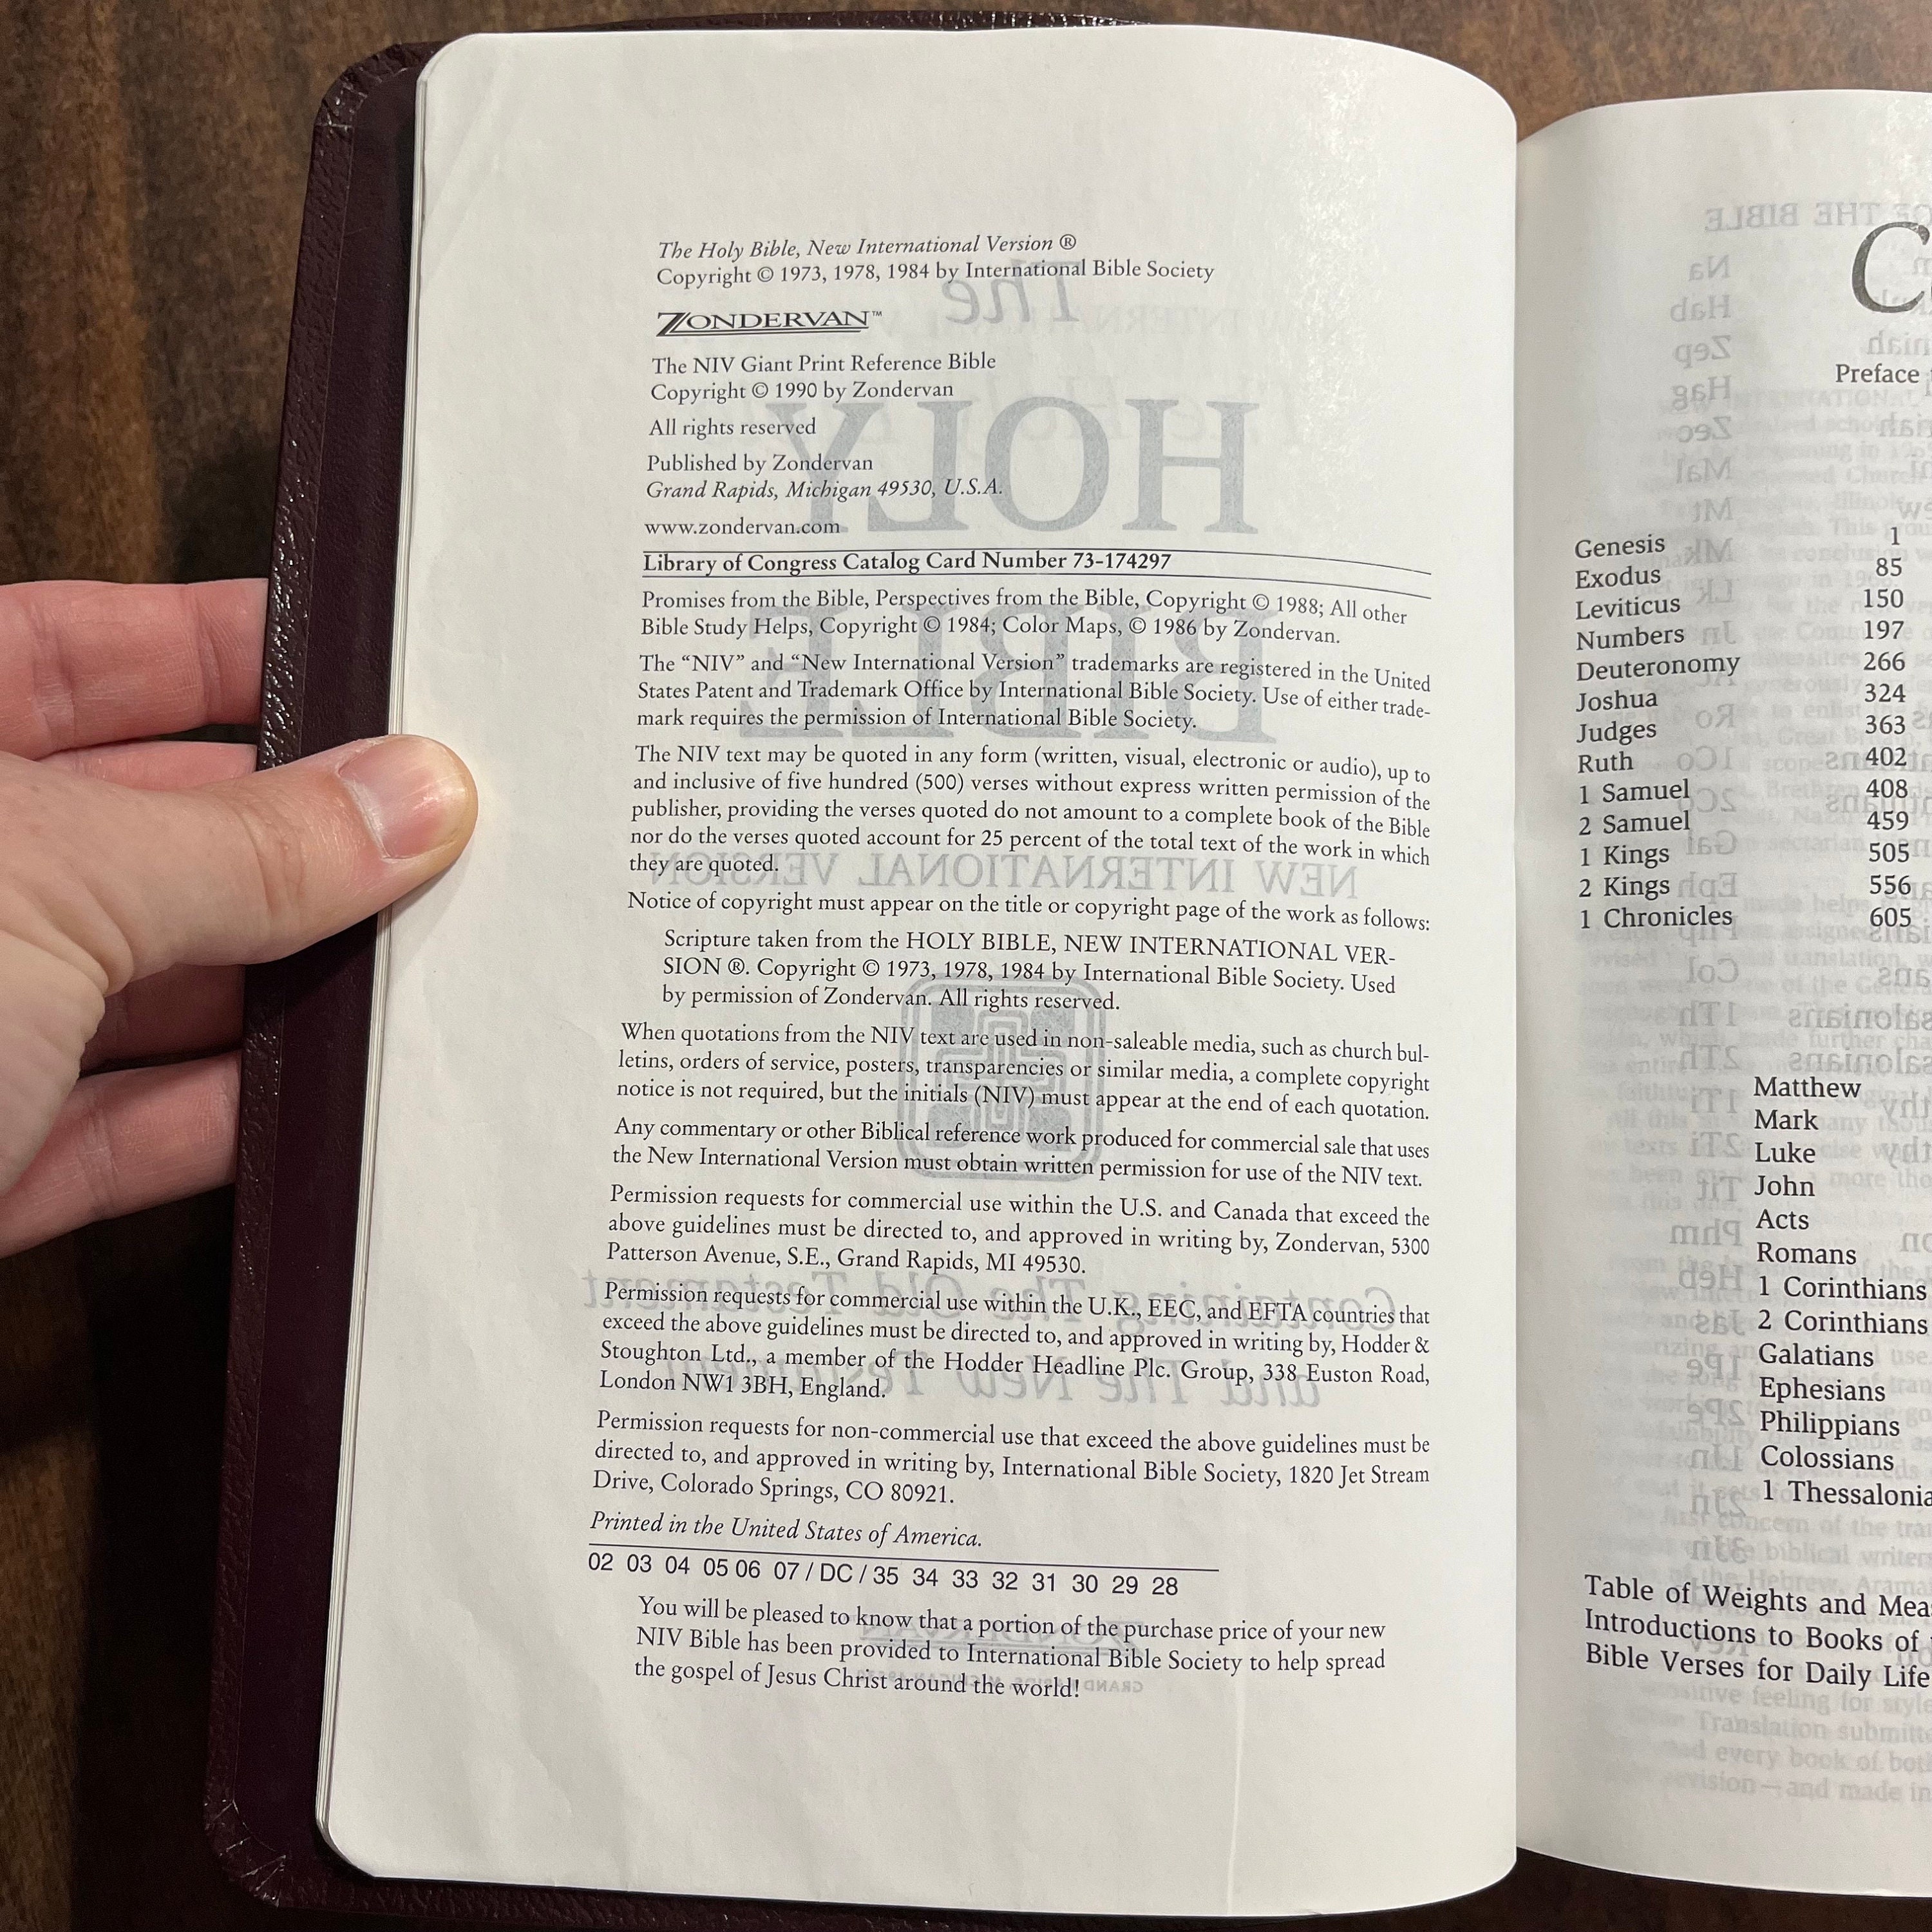 The Holy Bible, New International Version ®
Copyright © 1973, 1978, 1984 by International Bible Society
ZONDERVAN™
The NIV Giant Print Reference Bible
Copyright © 1990 by Zondervan
All rights reserved
Published by Zondervan
Grand Rapids, Michigan 49530, U.S.A.
www.zondervan.com
Library of Congress Catalog Card Number 73-174297
Promises from the Bible, Perspectives from the Bible, Copyright © 1988; All other
Bible Study Helps, Copyright © 1984; Color Maps, © 1986 by Zondervan.
The “NIV” and “New International Version” trademarks are registered in the United
States Patent and Trademark Office by International Bible Society. Use of either trade-
mark requires the permission of International Bible Society.
The NIV text may be quoted in any form (written, visual, electronic or audio), up to
and inclusive of five hundred (500) verses without express written permission of the
publisher, providing the verses quoted do not amount to a complete book of the Bible
nor do the verses quoted account for 25 percent of the total text of the work in which
they are quoted.
Notice of copyright must appear on the title or copyright page of the work as follows:
Scripture taken from the HOLY BIBLE, NEW INTERNATIONAL VER-
SION ®. Copyright © 1973, 1978, 1984 by International Bible Society. Used
by permission of Zondervan. All rights reserved.
When quotations from the NIV text are used in non-saleable media, such as church bul-
letins, orders of service, posters, transparencies or similar media, a complete copyright
notice is not required, but the initials (NIV) must appear at the end of each quotation.
Any commentary or other Biblical reference work produced for commercial sale that uses
the New International Version must obtain written permission for use of the NIV text.
Permission requests for commercial use within the U.S. and Canada that exceed the
above guidelines must be directed to, and approved in writing by, Zondervan, 5300
Patterson Avenue, S.E., Grand Rapids, MI 49530.
Permission requests for commercial use within the U.K., EEC, and EFTA countries that
exceed the above guidelines must be directed to, and approved in writing by, Hodder &
Stoughton Ltd., a member of the Hodder Headline Plc. Group, 338 Euston Road,
London NW1 3BH, England.
Permission requests for non-commercial use that exceed the above guidelines must be
directed to, and approved in writing by, International Bible Society, 1820 Jet Stream
Drive, Colorado Springs, CO 80921.
Printed in the United States of America.
02 03 04 05 06 07 / DC / 35 34 33 32 31 30 29 28
You will be pleased to know that a portion of the purchase price of your new
NIV Bible has been provided to International Bible Society to help spread
the gospel of Jesus Christ around the world!
Preface
Genesis 1
Exodus 85
Leviticus 150
Numbers 197
Deuteronomy 266
Joshua 324
Judges 363
Ruth 402
1 Samuel 408
2 Samuel 459
1 Kings 505
2 Kings 556
1 Chronicles 605
Matthew
Mark
Luke
John
Acts
Romans
1 Corinthians
2 Corinthians
Galatians
Ephesians
Philippians
Colossians
1 Thessalonia
Table of Weights and Mea
Introductions to Books of
Bible Verses for Daily Life